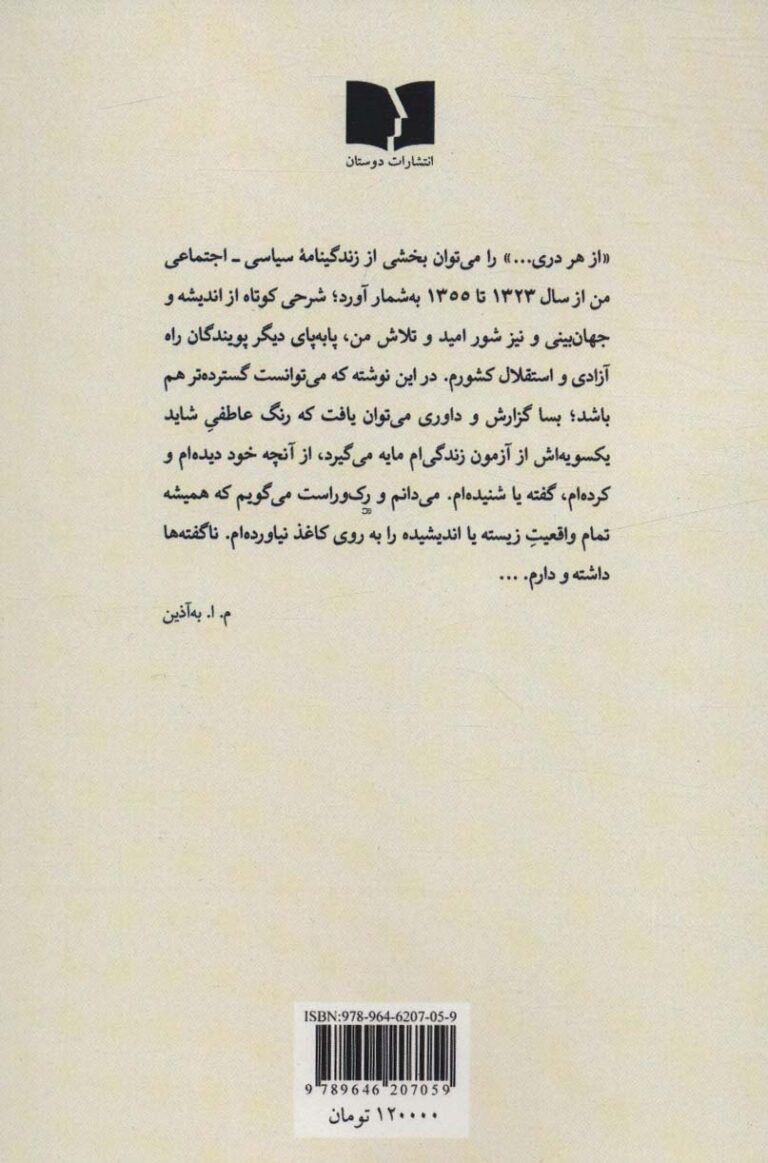 انتشارات دوستان
«از هر دری...» را می‌توان بخشی از زندگینامهٔ سیاسی ـ اجتماعی
من از سال ۱۳۲۳ تا ۱۳۵۵ به‌شمار آورد؛ شرحی کوتاه از اندیشه و
جهان‌بینی و نیز شور امید و تلاش من، پابه‌پای دیگر پویندگان راه
آزادی و استقلال کشورم. در این نوشته که می‌توانست گسترده‌تر هم
باشد؛ بسا گزارش و داوری می‌توان یافت که رنگ عاطفیِ شاید
یکسویه‌اش از آزمون زندگی‌ام مایه می‌گیرد، از آنچه خود دیده‌ام و
کرده‌ام، گفته یا شنیده‌ام. می‌دانم و رک‌وراست می‌گویم که همیشه
تمام واقعیتِ زیسته یا اندیشیده را به روی کاغذ نیاورده‌ام. ناگفته‌ها
داشته و دارم. ...
م. ا. به‌آذین
ISBN:978-964-6207-05-9
9 789646 207059
۱۲۰۰۰۰ تومان